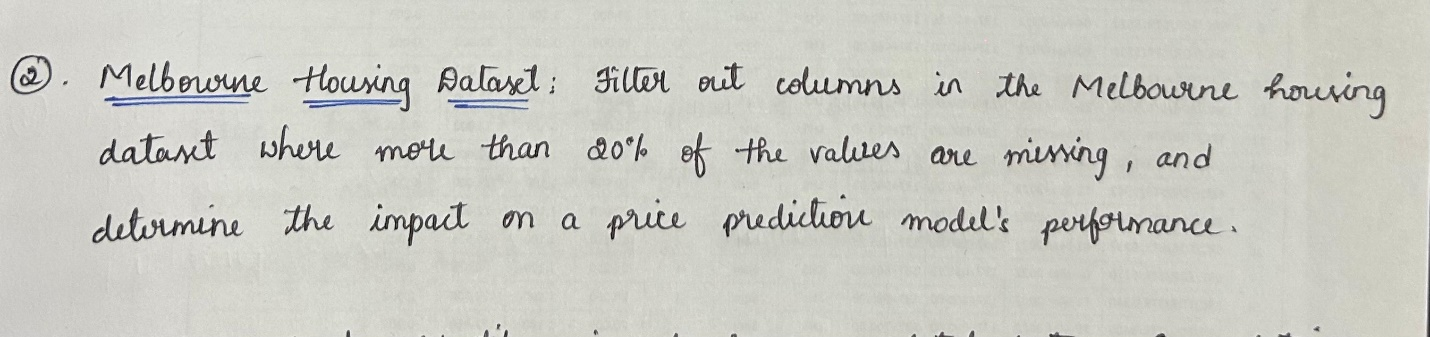 ②. Melbourne Housing Dataset: Filter out columns in the Melbourne housing
dataset where more than 20% of the values are missing, and
determine the impact on a price prediction model's performance.